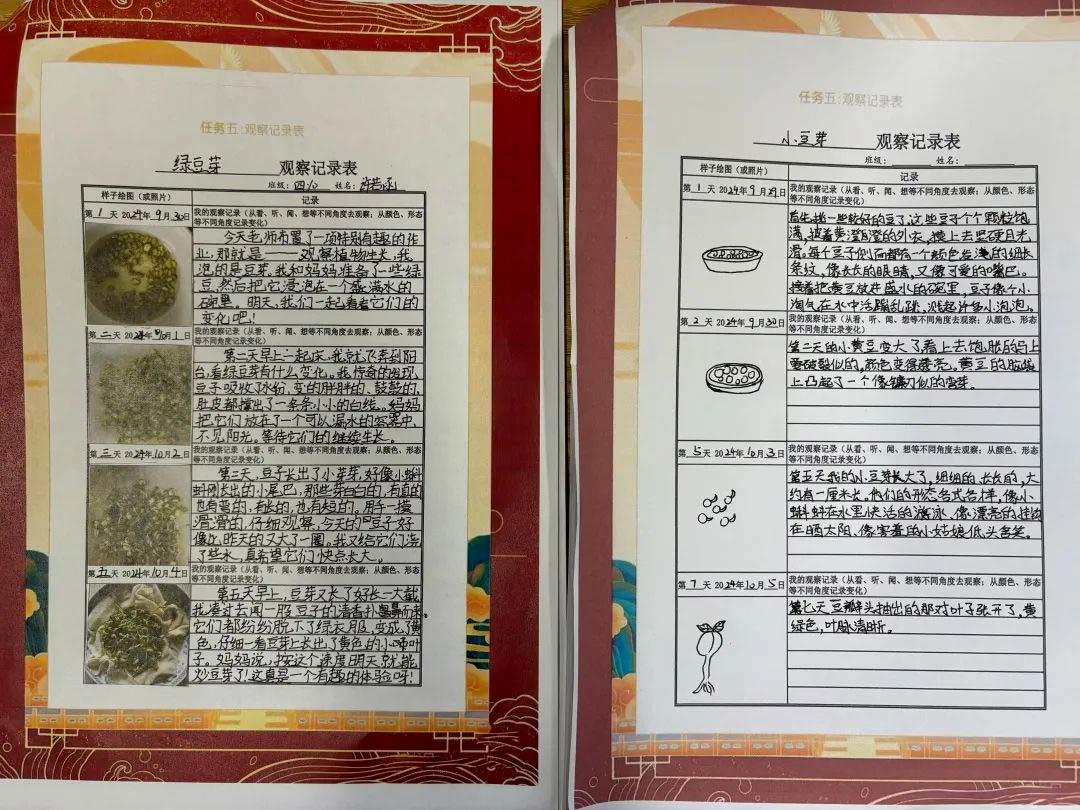 任务五:观察记录表
绿豆芽 观察记录表
班级: 四 姓名:
样子绘图（或照片） 记录
第1天 2024年9月30日
我的观察记录（从看、听、闻、想等不同角度去观察；从颜色、形态等不同角度记录变化）
今天老师布置了一项特别有趣的作
业,那就是——观察植物生长,我
泡的是豆芽。我和妈妈准备了一些绿
豆,然后把它浸泡在一个盛满水的
碗里。明天,我们一起看看它们的
变化吧!
第二天 2024年10月1日
我的观察记录（从看、听、闻、想等不同角度去观察；从颜色、形态等不同角度记录变化）
第二天早上一起床,我就飞奔到阳
台,看绿豆芽有什么变化。我惊奇的发现,
豆子吸收了水份,变的胖胖的、鼓鼓的,
肚皮都撑出了一条条小小的白线。妈妈
把它们放在了一个可以漏水的容器中,
不见阳光。等待它们的继续生长。
第三天 2024年10月2日
我的观察记录（从看、听、闻、想等不同角度去观察；从颜色、形态等不同角度记录变化）
第三天,豆子长出了小芽芽,好像小蝌
蚪刚长出的小尾巴,那些芽白白的,有直的
也有弯的,有长的,也有短的。用手一摸
滑滑的,仔细观察,今天的豆子好
像比昨天的又大了一圈。我又给它们浇
了些水,真希望它们快点长大。
第五天 2024年10月4日
我的观察记录（从看、听、闻、想等不同角度去观察；从颜色、形态等不同角度记录变化）
第五天早上,豆芽又长了好长一大截
我凑过去闻一股豆子的清香扑鼻而来。
它们都纷纷脱下了绿衣服,变成了黄
色,仔细一看豆芽上长出了黄色的小嫩叶
子。妈妈说,按这个速度明天就能
炒豆芽了!这真是一个有趣的体验呀!
任务五:观察记录表
小豆芽 观察记录表
班级: 姓名:
样子绘图（或照片） 记录
第1天 2024年9月29日
我的观察记录（从看、听、闻、想等不同角度去观察；从颜色、形态等不同角度记录变化）
首先挑一些较好的豆子,这些豆子个个颗粒饱
满,披着黄澄澄的外衣,摸上去坚硬且光
滑。每个豆子侧面都有一个颜色较浅的细长
条纹,像长长的眼睛,又像可爱的嘴巴。
接着把黄豆放进盛水的碗里,豆子像个小
淘气在水中活蹦乱跳,溅起许多小泡泡。
第2天 2024年9月30日
我的观察记录（从看、听、闻、想等不同角度去观察；从颜色、形态等不同角度记录变化）
第二天的小黄豆变大了,看上去饱胀的马上
要破裂似的。颜色变得漂亮。黄豆的
上凸起了一个像镰刀似的弯芽。
第5天 2024年10月3日
我的观察记录（从看、听、闻、想等不同角度去观察；从颜色、形态等不同角度记录变化）
第五天我的小豆芽长大了,细细的、长长的,大
约有一厘米长。他们的形态各式各样,像小
蝌蚪在水里快活的游泳、像漂亮的挂钩
在晒太阳、像害羞的小姑娘低头含笑。
第7天 2024年10月5日
我的观察记录（从看、听、闻、想等不同角度去观察；从颜色、形态等不同角度记录变化）
第七天豆瓣头抽出的那对叶子张开了,黄
绿色,叶脉清晰。